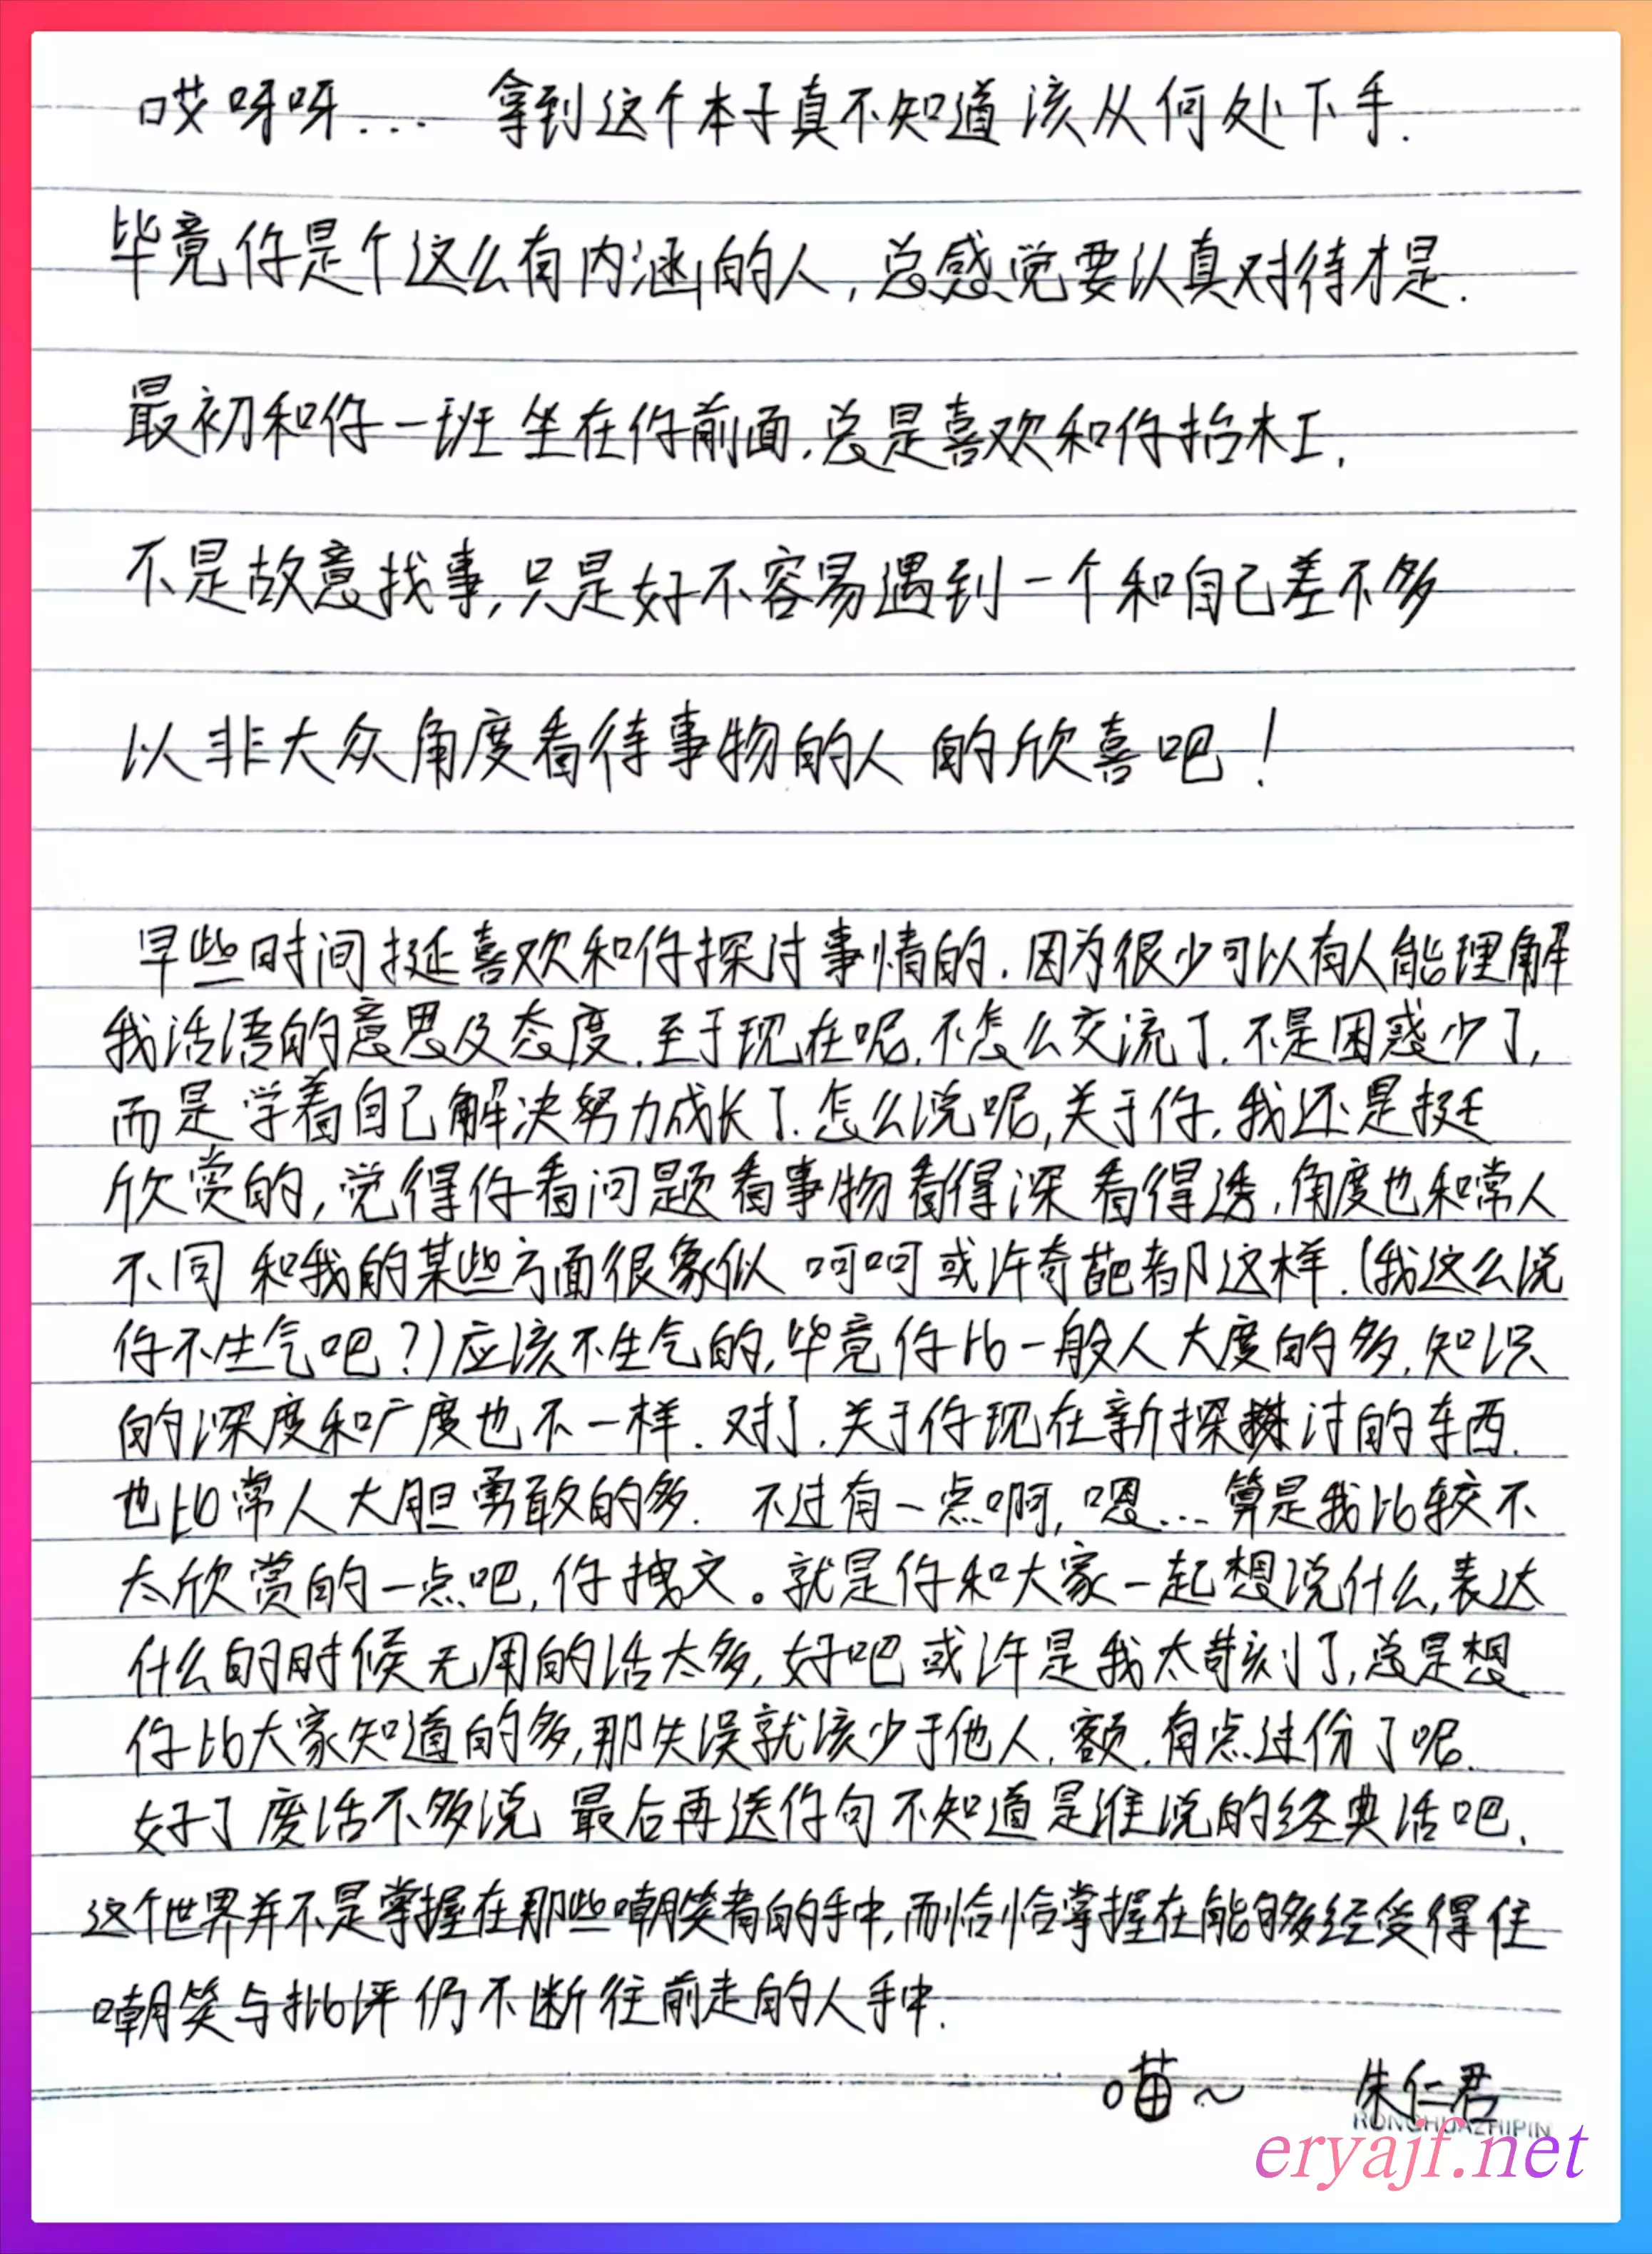 哎呀呀... 拿到这个本子真不知道该从何处下手.
毕竟你是个这么有内涵的人,总感觉要认真对待才是.
最初和你一班坐在你前面,总是喜欢和你抬杠,
不是故意找事,只是好不容易遇到一个和自己差不多
以非大众角度看待事物的人的欣喜吧!
早些时间挺喜欢和你探讨事情的.因为很少可以有人能理解
我话语的意思及态度.至于现在呢.不怎么交流了.不是困惑少了,
而是学着自己解决努力成长了.怎么说呢,关于你,我还是挺
欣赏的,觉得你看问题看事物看得深看得透,角度也和常人
不同 和我的某些方面很象似 呵呵 或许奇葩都这样.(我这么说
你不生气吧?)应该不生气的,毕竟你比一般人大度的多,知识
的深度和广度也不一样.对了,关于你现在新探讨的东西.
也比常人大胆勇敢的多. 不过有一点啊,嗯...算是我比较不
太欣赏的一点吧,你拽文。就是你和大家一起想说什么,表达
什么的时候无用的话太多,好吧或许是我太苛刻了,总是想
你比大家知道的多,那失误就该少于他人.额.有点过份了呢.
好了废话不多说 最后再送你句不知道是谁说的经典话吧.
这个世界并不是掌握在那些嘲笑者的手中,而恰恰掌握在能够经受得住
嘲笑与批评仍不断往前走的人手中.
喵~ 朱仁君
RONGHUAZHIPIN
eryajf.net